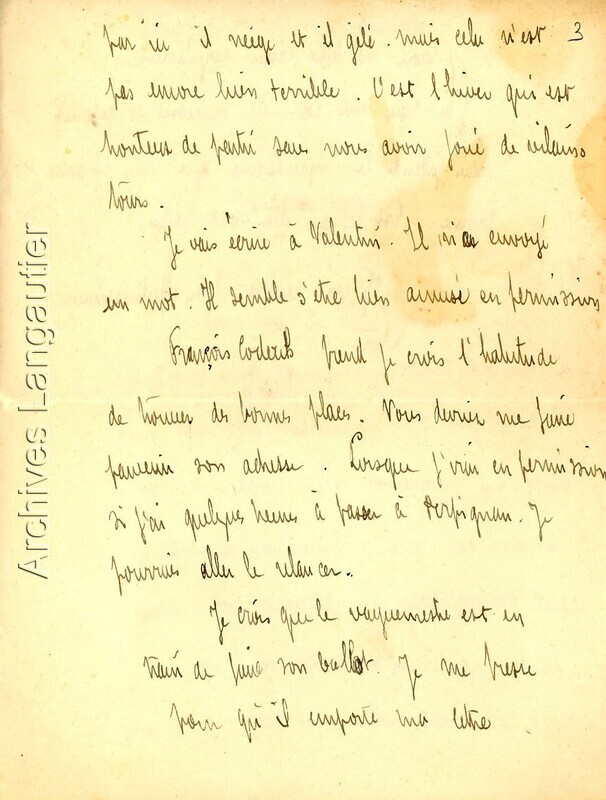 par ici il neige et il gèle. mais cela n'est 3
pas encore bien terrible. C'est l'hiver qui est
honteux de partir sans nous avoir joué de vilains
tours.
Je vais écrire à Valentin. Il m'a envoyé
un mot. Il semble s'être bien amusé en permission
François Coderch prend je crois l'habitude
de trouver des bonnes places. Vous devriez me faire
parvenir son adresse. Lorsque j'irai en permission
si j'ai quelques heures à passer à Perpignan. Je
pourrais aller le relancer.
Je crois que le vaguemestre est en
train de faire son ballot. Je me presse
pour qu'il emporte ma lettre
Archives Langautier